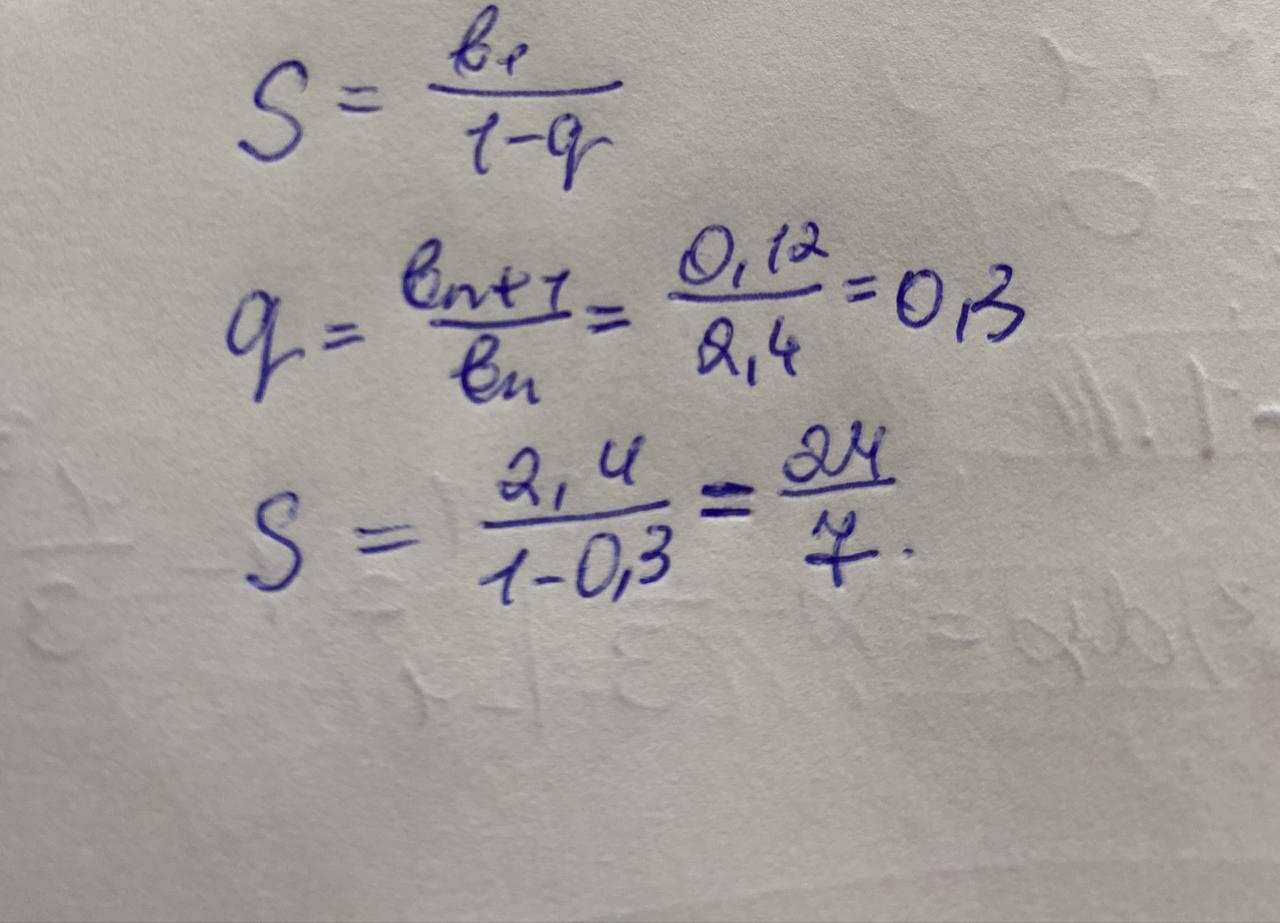 S = b₁/(1-q)
q = bₙ₊₁/bₙ = 0,12/2,4 = 0,3
S = 2,4/(1-0,3) = 24/7.